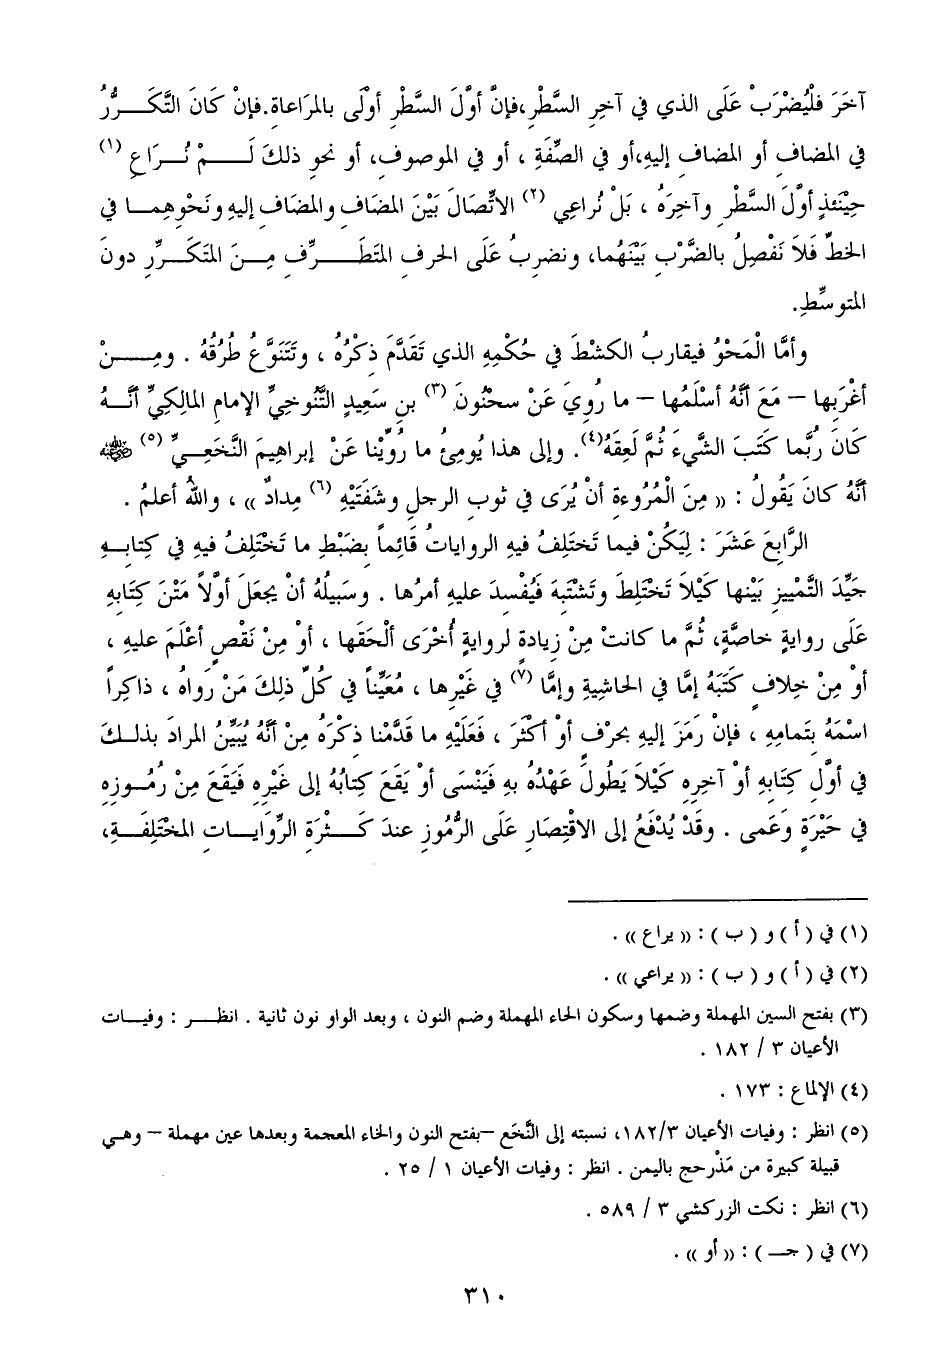 آخَرَ فَلْيُضْرَبْ عَلَى الذي في آخِرِ السَّطْرِ،فإنَّ أوَّلَ السَّطْرِ أوْلَى بالمرَاعاةِ.فإنْ كَانَ التَّكَـــرُّرُ
في المضافِ أو المضافِ إليهِ،أو في الصِّفَةِ ، أو في الموصوفِ، أو نحوِ ذلكَ لَـــمْ نُـــرَاعِ (١)
حِيْنَئذٍ أوَّلَ السَّطْرِ وآخِرَهُ ، بَلْ نُراعِي (٢) الاتِّصَالَ بَيْنَ المضَافِ والمضَافِ إليهِ ونَحْوِهِمـا في
الخطِّ فَلاَ نَفْصِلُ بالضَّرْبِ بَيْنَهُما، ونضرِبُ عَلَى الحرفِ المتَطَـــرِّفِ مِـنَ المتَكَـــرِّرِ دونَ
المتوسِّطِ.
وأمَّا الْمَحْوُ فيقاربُ الكشْطَ في حُكْمِهِ الذي تَقَدَّمَ ذِكْرُهُ ، وتَتَنَوَّعُ طُرُقُهُ . ومِـــنْ
أغْرَبِها – مَعَ أنَّهُ أسْلَمُها – ما رُوِيَ عَنْ سحْنُونَ (٣) بنِ سَعِيدٍ التَّنُوخِيِّ الإمامِ المالِكِيِّ أنَّـهُ
كَانَ رُبَّما كَتَبَ الشَّيءَ ثُمَّ لَعِقَهُ(٤). وإلى هذا يُومِئُ ما رُوِّيْنا عَنْ إبراهيمَ النَّخَعِـيِّ (٥) ﷺ
أنَّهُ كانَ يَقُولُ : « مِنَ الْمُرُوءةِ أنْ يُرَى في ثوبِ الرجلِ وشَفَتَيْهِ (٦) مِدادٌ » ، واللهُ أعلمُ .
الرَّابِعَ عَشَرَ : لِيَكُنْ فيما تَختَلِفُ فيهِ الرواياتُ قَائِماً بِضَبْطِ ما تَخْتَلِفُ فيهِ في كِتابِـهِ
جَيِّدَ التَّمْييزِ بَيْنَها كَيْلاَ تَخْتَلِطَ وتَشْتَبِهَ فَيُفْسِدَ عليهِ أمرُها . وسَبيلُهُ أنْ يجعَلَ أوَّلاً مَتْنَ كِتابِهِ
عَلَى روايةٍ خاصَّةٍ، ثُمَّ ما كانتْ مِنْ زيادةٍ لروايةٍ أُخْرَى ألْحَقَها ، أوْ مِنْ نَقْصٍ أعْلَمَ عليهِ ،
أو مِنْ خِلافٍ كَتَبَهُ إمَّا في الحاشِيةِ وإمَّا (٧) في غَيْرِها ، مُعَيِّناً في كُلِّ ذلِكَ مَنْ رَواهُ ، ذاكِراً
اسْمَهُ بِتَمامِهِ ، فإنْ رَمَزَ إليهِ بحرْفٍ أوْ أكْثَرَ ، فَعَلَيْهِ ما قَدَّمْنا ذِكْرَهُ مِنْ أنَّهُ يُبَيِّنُ المرادَ بذلـكَ
في أوَّلِ كِتابِهِ أوْ آخِرِهِ كَيْلاَ يَطُولَ عَهْدُهُ بهِ فَيَنْسَى أو يَقَعَ كِتابُهُ إلى غَيْرِهِ فَيَقَعَ مِنْ رُمُـوزِهِ
في حَيْرَةٍ وعَمى . وقَدْ يُدْفَعُ إلى الاقْتِصَارِ عَلَى الرُّمُوزِ عندَ كَـــثْرَةِ الرِّوَايـــاتِ المخْتَلِفَـــةِ،
(١) في ( أ ) و ( ب ) : « يراع » .
(٢) في ( أ ) و ( ب ) : « يراعي » .
(٣) بفتح السين المهملة وضمها وسكون الحاء المهملة وضم النون ، وبعد الواو نون ثانية . انظـــر : وفيـات
الأعيان ٣ / ١٨٢ .
(٤) الإلماع : ١٧٣ .
(٥) انظر : وفيات الأعيان ١٨٢/٣، نسبته إلى النَّخَع –بفتح النون والخاء المعجمة وبعدها عين مهملة – وهـي
قبيلة كبيرة من مَذْرحج باليمن . انظر : وفيات الأعيان ١ / ٢٥ .
(٦) انظر : نكت الزركشي ٣ / ٥٨٩ .
(٧) في ( جـ ) : « أو » .
٣١٠